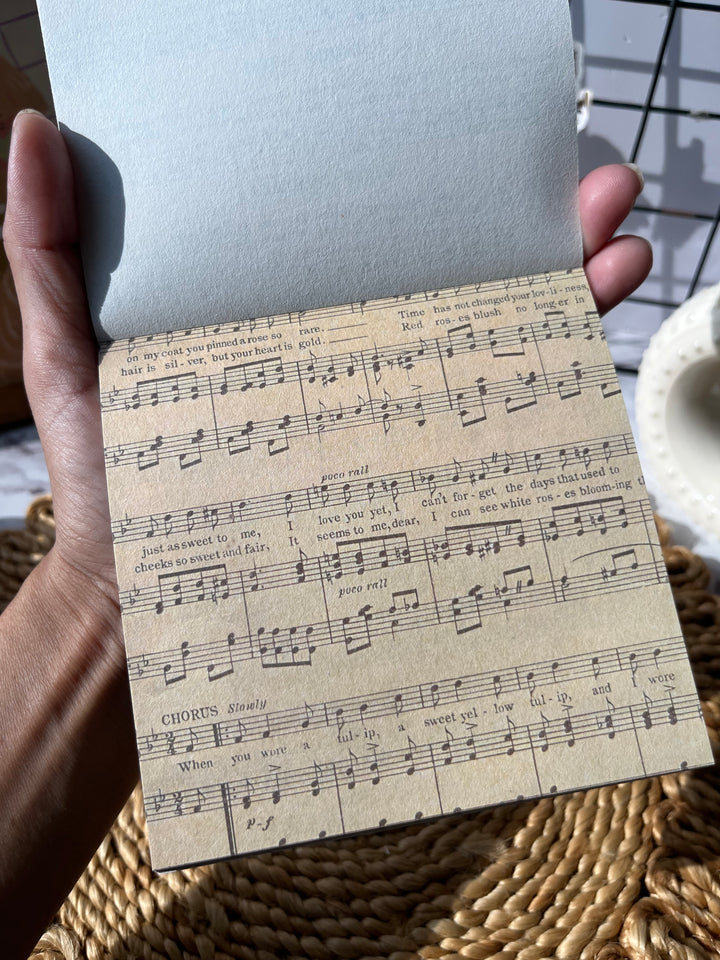 on my coat you pinned a rose so rare. Time has not changed your lov-li-ness,
hair is sil-ver, but your heart is gold. Red ros-es blush no long-er in
poco rall
just as sweet to me, I love you yet, I can't for-get the days that used to
cheeks so sweet and fair, It seems to me, dear, I can see white ros-es bloom-ing
poco rall
CHORUS Slowly
When you wore a tul-ip, a sweet yel-low tul-ip, and I wore
p-f